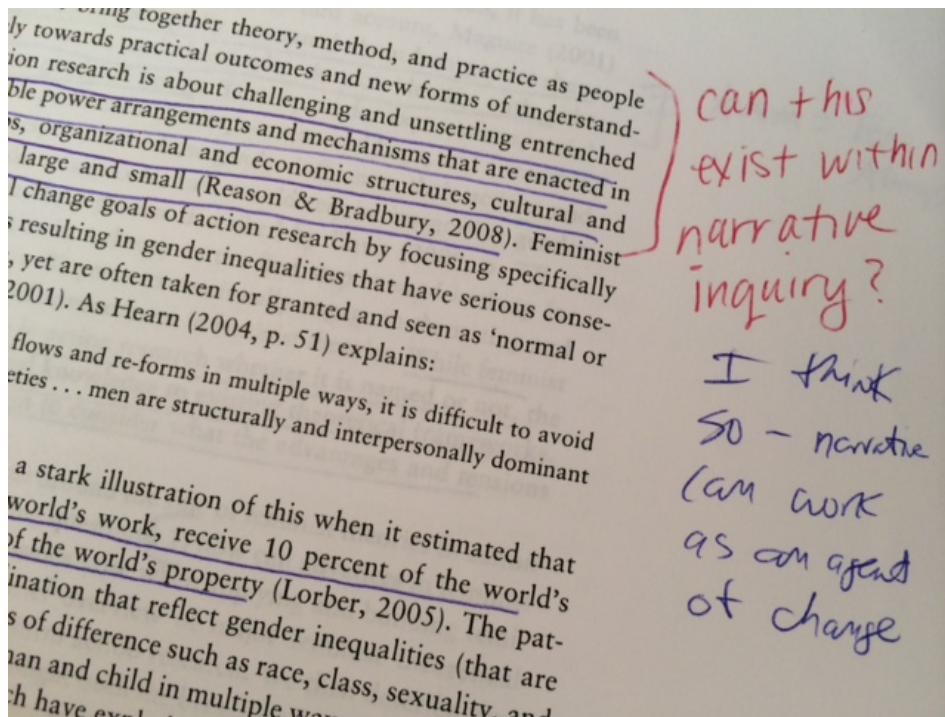 bring together theory, method, and practice as people
ly towards practical outcomes and new forms of understand-
ion research is about challenging and unsettling entrenched
ble power arrangements and mechanisms that are enacted in
os, organizational and economic structures, cultural and
large and small (Reason & Bradbury, 2008). Feminist
l change goals of action research by focusing specifically
s resulting in gender inequalities that have serious conse-
, yet are often taken for granted and seen as 'normal or
2001). As Hearn (2004, p. 51) explains:
flows and re-forms in multiple ways, it is difficult to avoid
eties . . . men are structurally and interpersonally dominant
a stark illustration of this when it estimated that
world's work, receive 10 percent of the world's
of the world's property (Lorber, 2005). The pat-
ination that reflect gender inequalities (that are
s of difference such as race, class, sexuality, and
man and child in multiple
ch have
can this
exist within
narrative
inquiry?
I think
so – narrative
can work
as an agent
of change